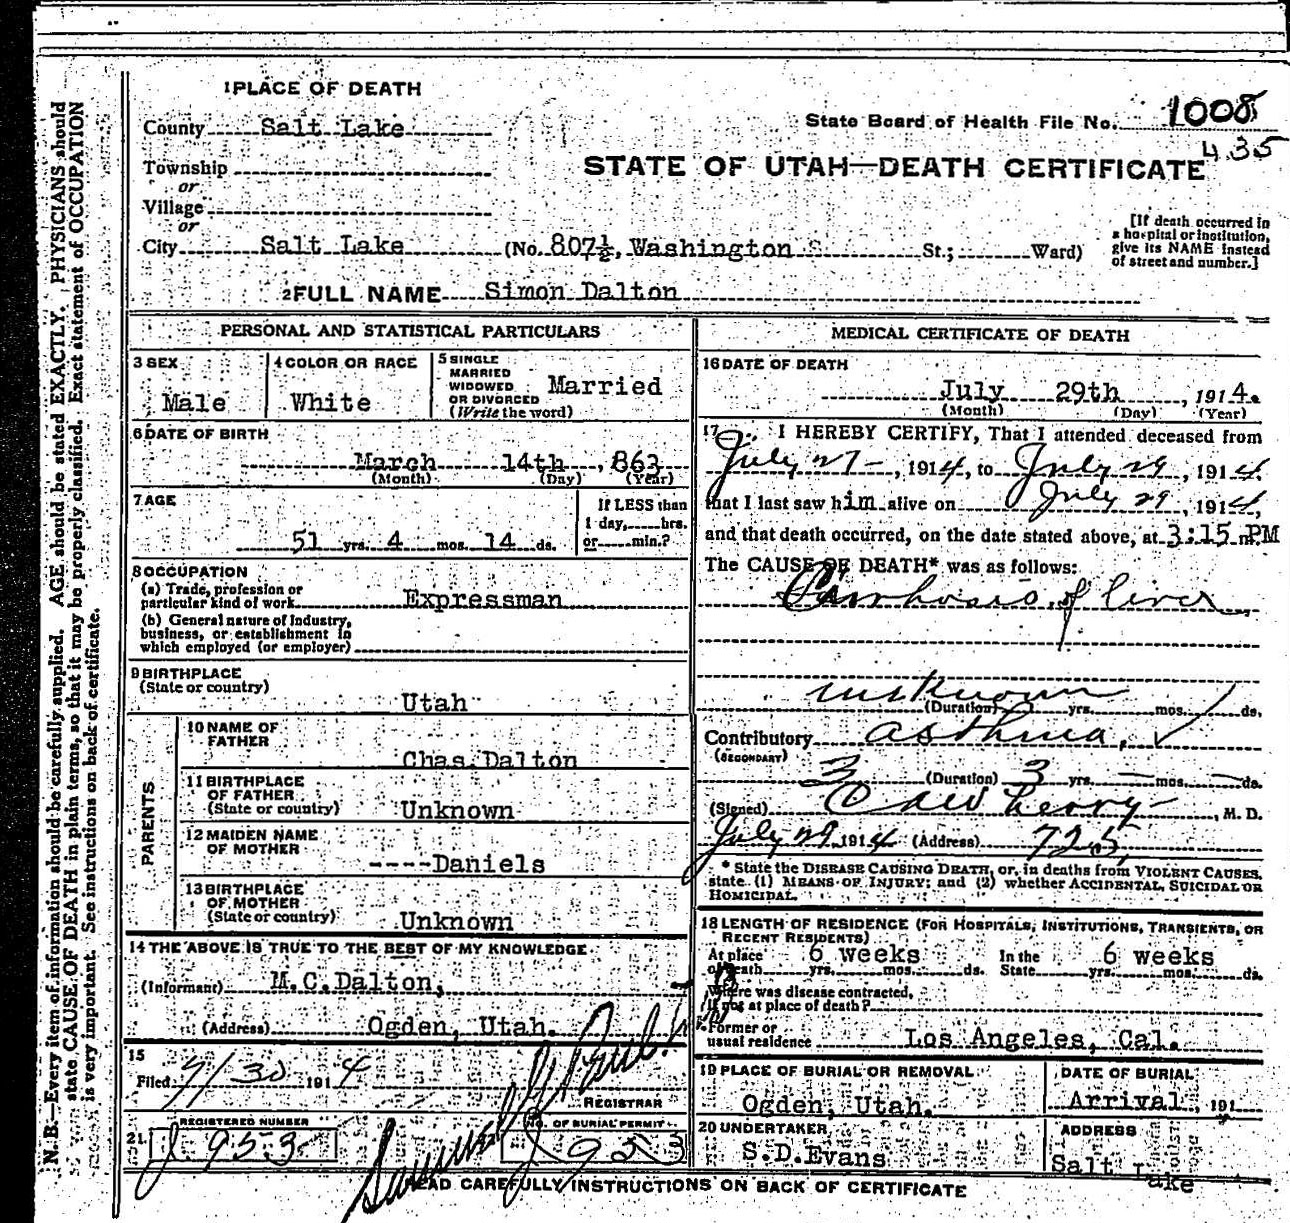 1 PLACE OF DEATH
County Salt Lake
State Board of Health File No. 1008
435
STATE OF UTAH—DEATH CERTIFICATE
Township
or
Village
or
City Salt Lake (No. 807½, Washington S St.; Ward)
[If death occurred in
a hospital or institution,
give its NAME instead
of street and number.]
2 FULL NAME Simon Dalton
PERSONAL AND STATISTICAL PARTICULARS
3 SEX
Male
4 COLOR OR RACE
White
5 SINGLE
MARRIED
WIDOWED
OR DIVORCED
(Write the word)
Married
6 DATE OF BIRTH
March 14th, 863
(Month) (Day) (Year)
7 AGE
51 yrs. 4 mos. 14 ds.
If LESS than
1 day, hrs.
or min.?
8 OCCUPATION
(a) Trade, profession or
particular kind of work Expressman
(b) General nature of Industry,
business, or establishment in
which employed (or employer)
9 BIRTHPLACE
(State or country)
Utah
PARENTS
10 NAME OF
FATHER
Chas. Dalton
11 BIRTHPLACE
OF FATHER
(State or country) Unknown
12 MAIDEN NAME
OF MOTHER
----Daniels
13 BIRTHPLACE
OF MOTHER
(State or country) Unknown
14 THE ABOVE IS TRUE TO THE BEST OF MY KNOWLEDGE
(Informant) M.C.Dalton,
(Address) Ogden, Utah.
15
Filed 7/30 1914
REGISTRAR
REGISTERED NUMBER
21. J 953
NO. OF BURIAL PERMIT
J 953
MEDICAL CERTIFICATE OF DEATH
16 DATE OF DEATH
July 29th, 1914.
(Month) (Day) (Year)
17 I HEREBY CERTIFY, That I attended deceased from
July 27, 1914, to July 29, 1914.
that I last saw him alive on July 29, 1914,
and that death occurred, on the date stated above, at 3:15 m PM
The CAUSE OF DEATH* was as follows:
Cirrhosis of liver
unknown
(Duration) yrs. mos. ds.
Contributory asthma,
(SECONDARY)
3 (Duration) 3 yrs. — mos. — ds.
(Signed) , M. D.
July 29 1914 (Address) 725,
* State the DISEASE CAUSING DEATH, or, in deaths from VIOLENT CAUSES,
state (1) MEANS OF INJURY; and (2) whether ACCIDENTAL, SUICIDAL OR
HOMICIDAL.
18 LENGTH OF RESIDENCE (FOR HOSPITALS, INSTITUTIONS, TRANSIENTS, OR
RECENT RESIDENTS)
At place 6 weeks In the 6 weeks
of death yrs. mos. ds. State yrs. mos. ds.
Where was disease contracted,
if not at place of death?
Former or
usual residence Los Angeles, Cal.
19 PLACE OF BURIAL OR REMOVAL
Ogden, Utah.
DATE OF BURIAL
Arrival, 191
20 UNDERTAKER
S.D.Evans
ADDRESS
Salt Lake
READ CAREFULLY INSTRUCTIONS ON BACK OF CERTIFICATE
N. B.—Every item of information should be carefully supplied. AGE should be stated EXACTLY. PHYSICIANS should
state CAUSE OF DEATH in plain terms, so that it may be properly classified. Exact statement of OCCUPATION
is very important. See instructions on back of certificate.